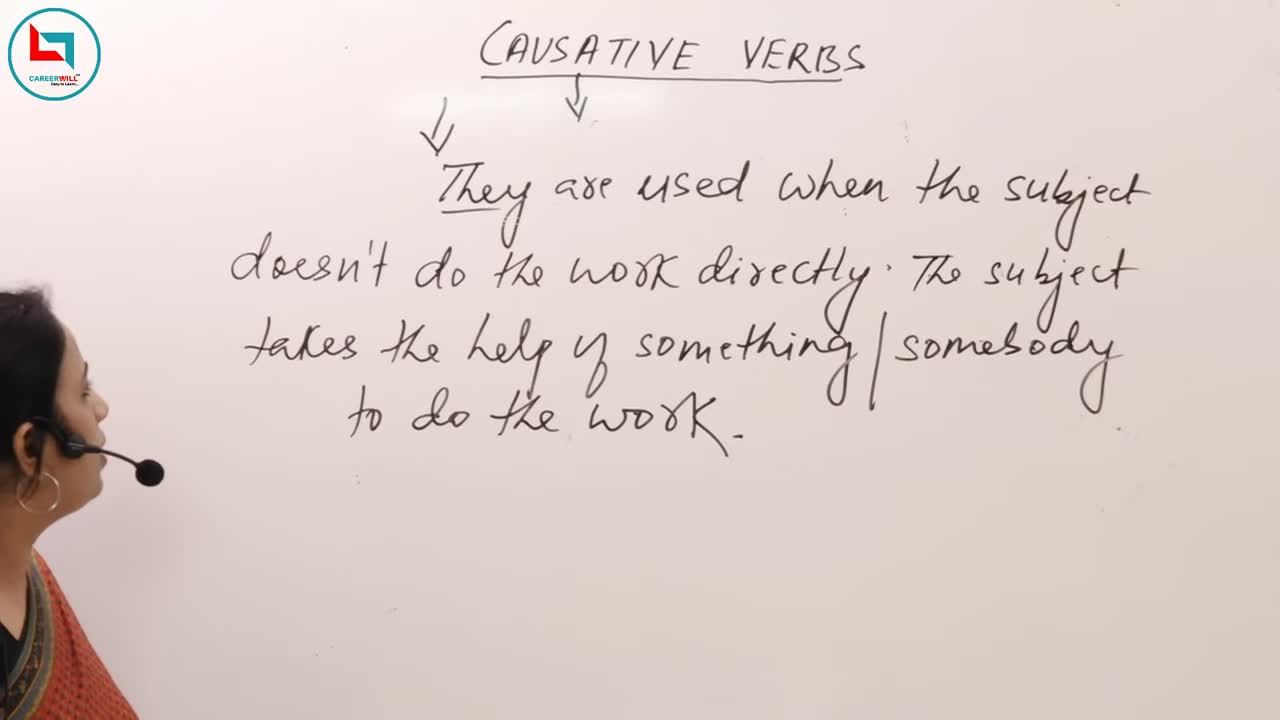 CAREERWILL
Easy to Learn...
CAUSATIVE VERBS
They are used when the subject
doesn't do the work directly. The subject
takes the help of something/somebody
to do the work.